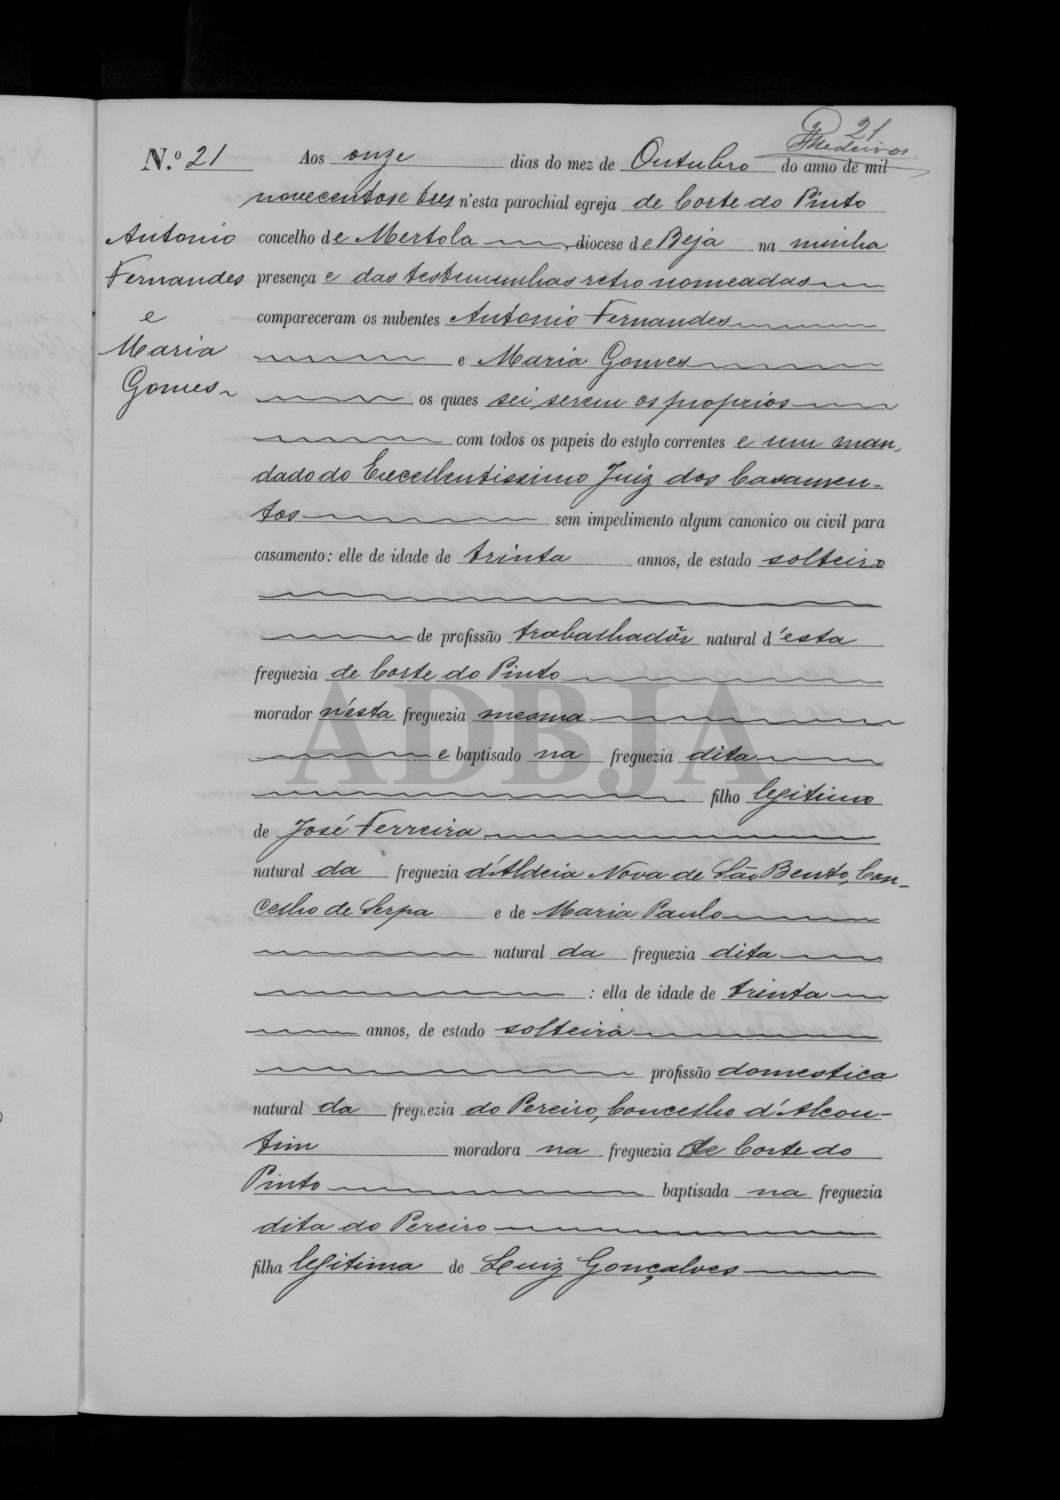 21
Medeiros
N.º 21 Aos onze dias do mez de Outubro do anno de mil
novecentos e tres n'esta parochial egreja de Corte do Pinto
Antonio
Fernandes
e
Maria
Gomes
concelho de Mertola diocese de Beja na minha
presença e das testemunhas retro nomeadas
compareceram os nubentes Antonio Fernandes
e Maria Gomes
os quaes sei serem os proprios
com todos os papeis do estylo correntes e um man-
dado do Excellentissimo Juiz dos Casamen-
tos sem impedimento algum canonico ou civil para
casamento: elle de idade de trinta annos, de estado solteiro
de profissão trabalhadôr natural d'esta
freguezia de Corte do Pinto
morador n'esta freguezia mesma
e baptisado na freguezia dita
filho legitimo
de José Ferreira
natural da freguezia d'Aldeia Nova de São Bento, Con-
celho de Serpa e de Maria Paulo
natural da freguezia dita
: ella de idade de trinta
annos, de estado solteira
profissão domestica
natural da freguezia do Pereiro, Concelho d'Alcou-
tim moradora na freguezia de Corte do
Pinto baptisada na freguezia
dita do Pereiro
filha legitima de Luiz Gonçalves
ADBJA